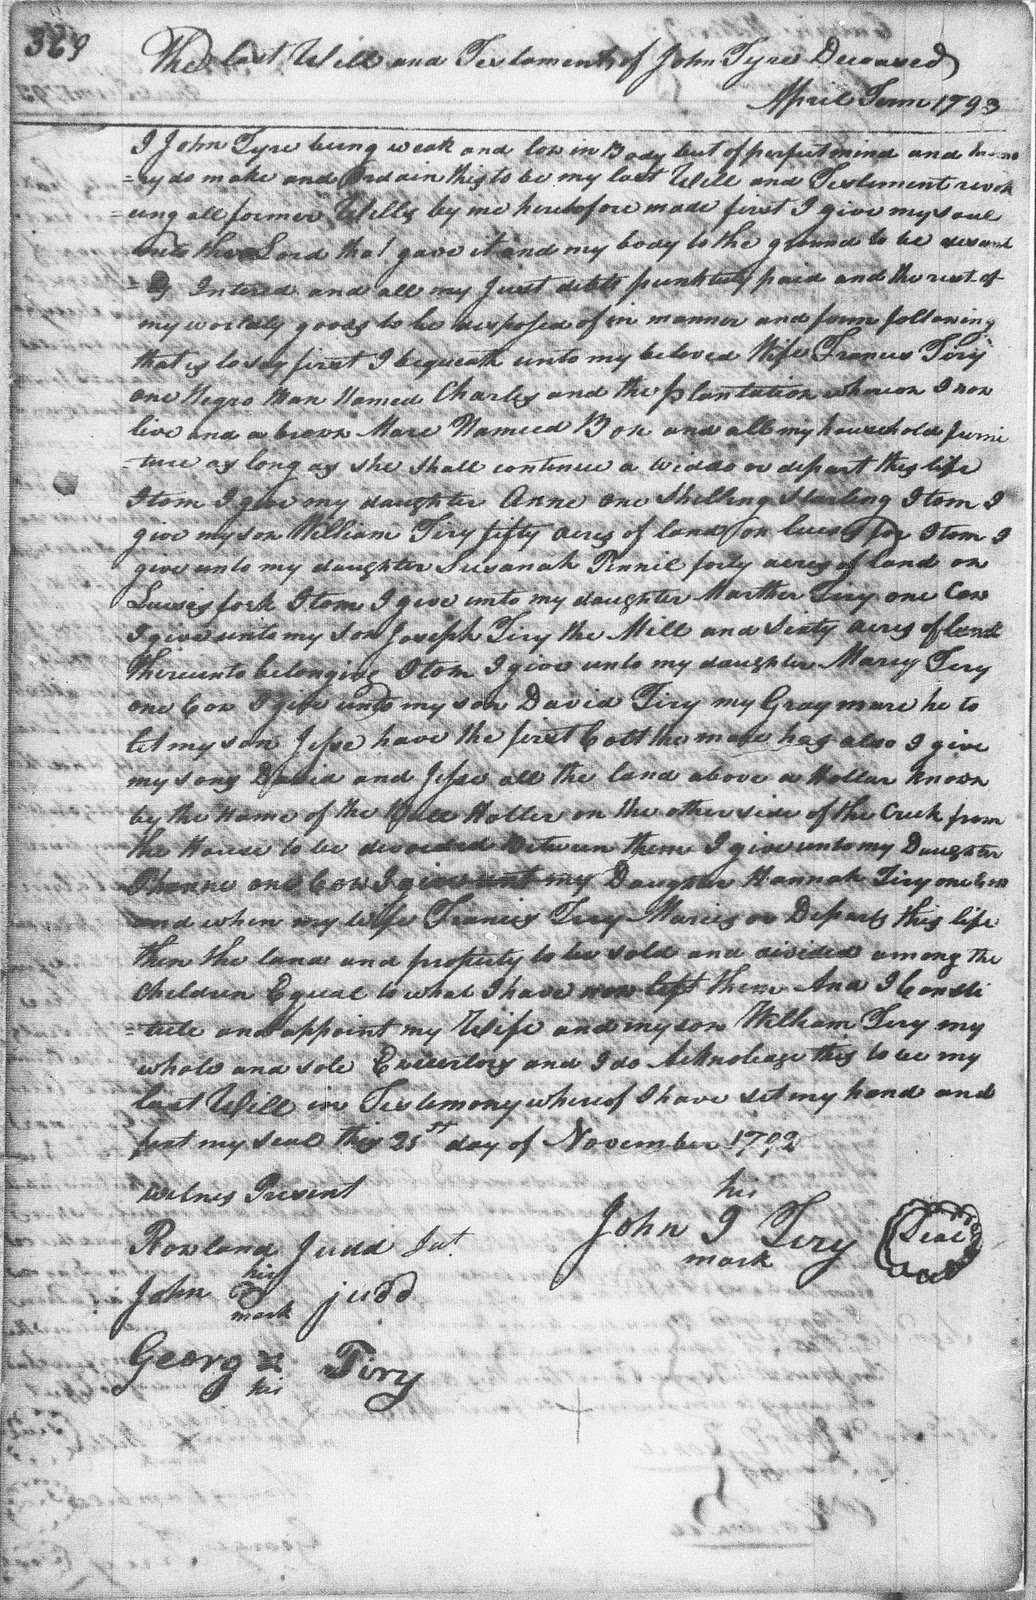 369
The last Will and Testament of John Tyre Deceased
April Term 1793
I John Tyre being weak and low in Body but of perfect mind and memo
=ry do make and ordain this to be my last Will and Testement revok
=ing all former Wills by me heretofore made first I give my soul
unto the Lord that gave it and my body to the ground to be
Intered and all my Just debts punktuly paid and the rest of
my worldly goods to be disposed of in manner and form following
that is to say first I bequeath unto my beloved Wife Francis Tiry
one Negro Man Named Charles and the plantation whereon I now
live and a brown Mare Nameed Bon and all my household furni
=ture as long as she shall continue a widdo or depart this life
Itom I give my daughter Anne one Shilling Starling Itom I
give my son William Tiry fifty acres of land on Itom I
give unto my daughter Susanah Pinnil forty acres of land on
fork Itom I give unto my daughter Marther Tiry one Cow
I give unto my son Joseph Tiry the Mill and Sixty acres of land
thereunto belonging Itom I give unto my daughter Marey Tiry
one Cow I give unto my son David Tiry my Gray mare he to
let my son Jesse have the first Colt the mare has also I give
my sons David and Jesse all the land above a Hollar known
by the Name of the Holler on the other side of the Creek from
the House to be devided Between them I give unto my Daughter
one Cow I give unt my Daughter Hannah Tiry one Cow
and when my wife Francis Tiry Maries or Departs this life
then the land and property to be sold and divided among the
Children Equal to what I have now left them And I Consti
=tute and appoint my Wife and my son William Tiry my
whole and sole Executors and I do Acknoleage this to be my
last Will in Testemony whereof I have set my hand and
my seal this 25th day of November 1792
Witnes Present
his
John I Tiry Seal
mark
Rowland Judd Jut.
his
John judd
mark
George Tiry
his